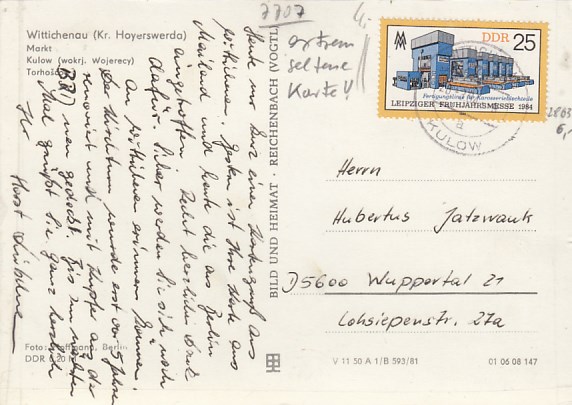 Wittichenau (Kr. Hoyerswerda)
Markt
Kulow (wokrj. Wojerecy)
Torhošćo
7707
extrem
seltene
Karte!!
DDR 25
Fertigungslinie für Karosserieblechteile
LEIPZIGER FRÜHJAHRSMESSE 1984
KULOW
Heute nur kurz einen Kartengruß aus
Wittichenau. Gestern ist Ihre Karte aus
Mailand und heute die aus Berlin
eingetroffen. Recht herzlichen Dank
dafür. Sicher werden Sie sich noch
an Wittichenau erinnern können.
Der Kirchturm wurde erst vor 5 Jahren
renoviert und mit Kupfer aus der
neu gedeckt. Bis zum nächsten
Mal grüßt Sie ganz herzlich
Ihr Horst
BILD UND HEIMAT · REICHENBACH (VOGTL
Herrn
Hubertus Jatzwauk
D5600 Wuppertal 21
Lohsiepenstr. 27a
Foto: Hoffmann, Berlin
DDR 0,20 M
V 11 50 A 1/B 593/81
01 06 08 147